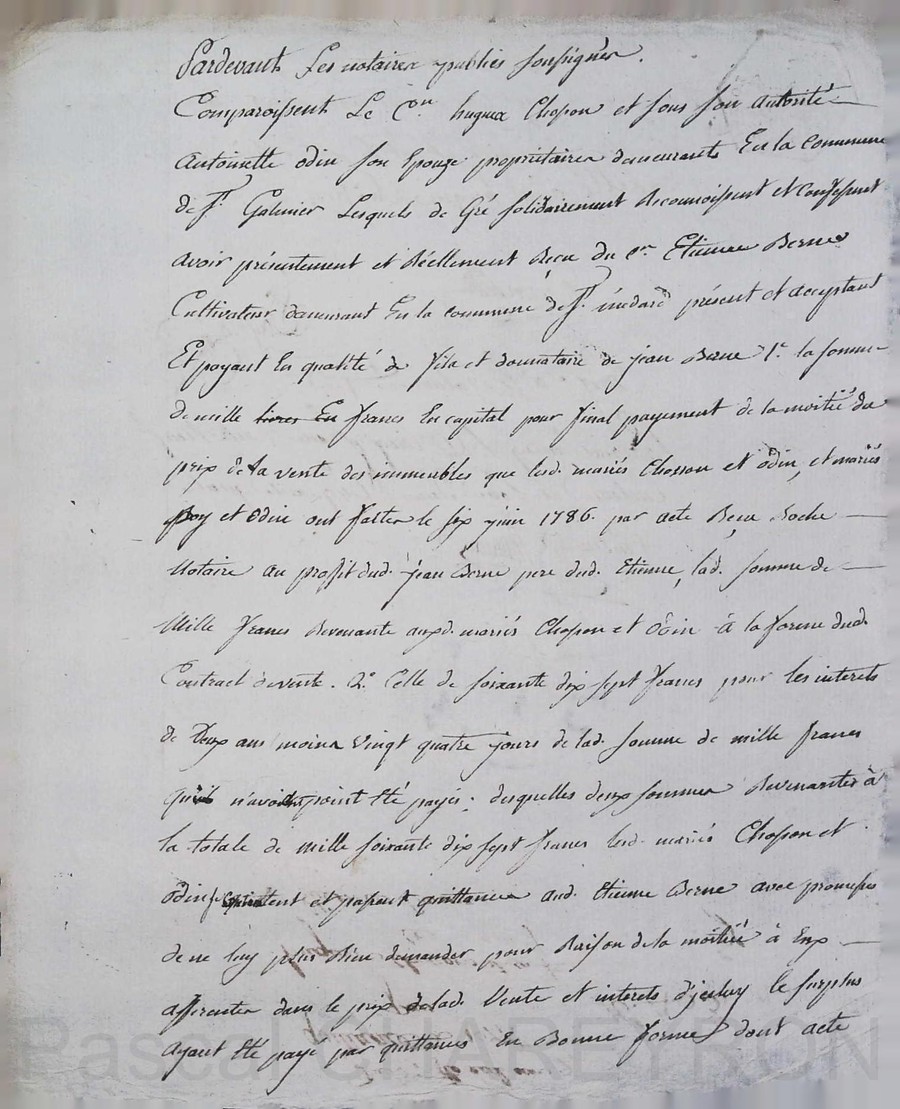 Pardevant Les notaires publics soussignés.
Comparoissent Le C.en hugues Chosson et sous son autorité
Antoinette odin son Epouze propriétaires demeurants En la commune
de St. Galmier Lesquels de Gré solidairement Reconnoissent et Confessent
avoir présentement et Réellement Reçu du c.en Etienne Berne
Cultivateur demeurant En la commune de St. médard présent et acceptant
Et payant En qualité de fils et donnataire de jean Berne 1.° la somme
de mille livres En francs En capital pour final payement de la moitié du
prix de la vente des immeubles que lesd. mariés Chosson et odin, et mariés
Boy et Odin ont faitte le six juin 1786. par acte Reçu Roche
Notaire au proffit dud. jean Berne pere dud. Etienne, lad. somme de
Mille francs Revenante auxd. mariés Chosson et Odin à la forme dud.
Contract de vente. 2.° Celle de soixante dix sept francs pour les interets
de Deux ans moins vingt quatre jours de lad. somme de mille francs
qu'il n'avoit point Eté payés; desquelles deux sommes Revenantes à
la totale de mille soixante dix sept francs lesd. mariés Chosson et
odin se contentent et passent quittance aud. Etienne Berne avec promesse
de ne luy plus Rien demander pour Raison de la moitié à Eux
afferente dans le prix de lad. Vente et interets d'jceluy le surplus
ayant Eté payé par quittances En Bonne forme dont acte
Pascal CHARETRON